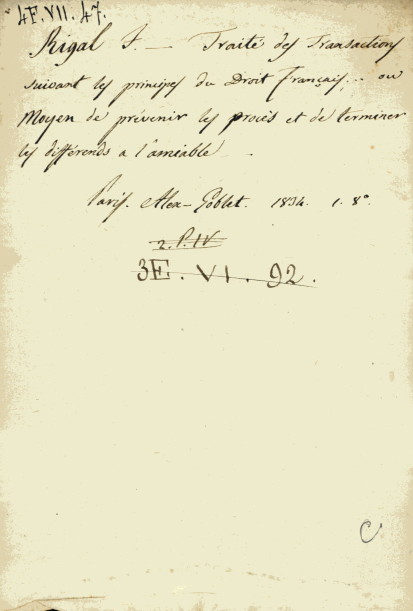 4F. VII. 47.
Rigal J. — Traité des Transactions
suivant les principes du Droit Français... ou
Moyen de prévenir les procès et de terminer
les différends a l'amiable.
Paris. Alex-Goblet. 1834. 1. 8°.
2. P. IV
3E. VI. 92.
C